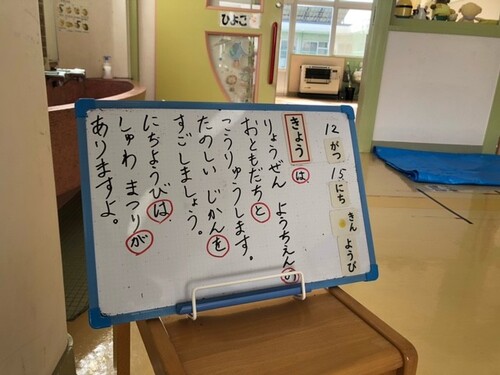 ひよこ
12がつ 15にち きんようび
きょうは
りょうぜん ようちえんの
おともだちと
こうりゅうします。
たのしい じかんを
すごしましょう。
にちようびは
しゅわ まつりが
ありますよ。